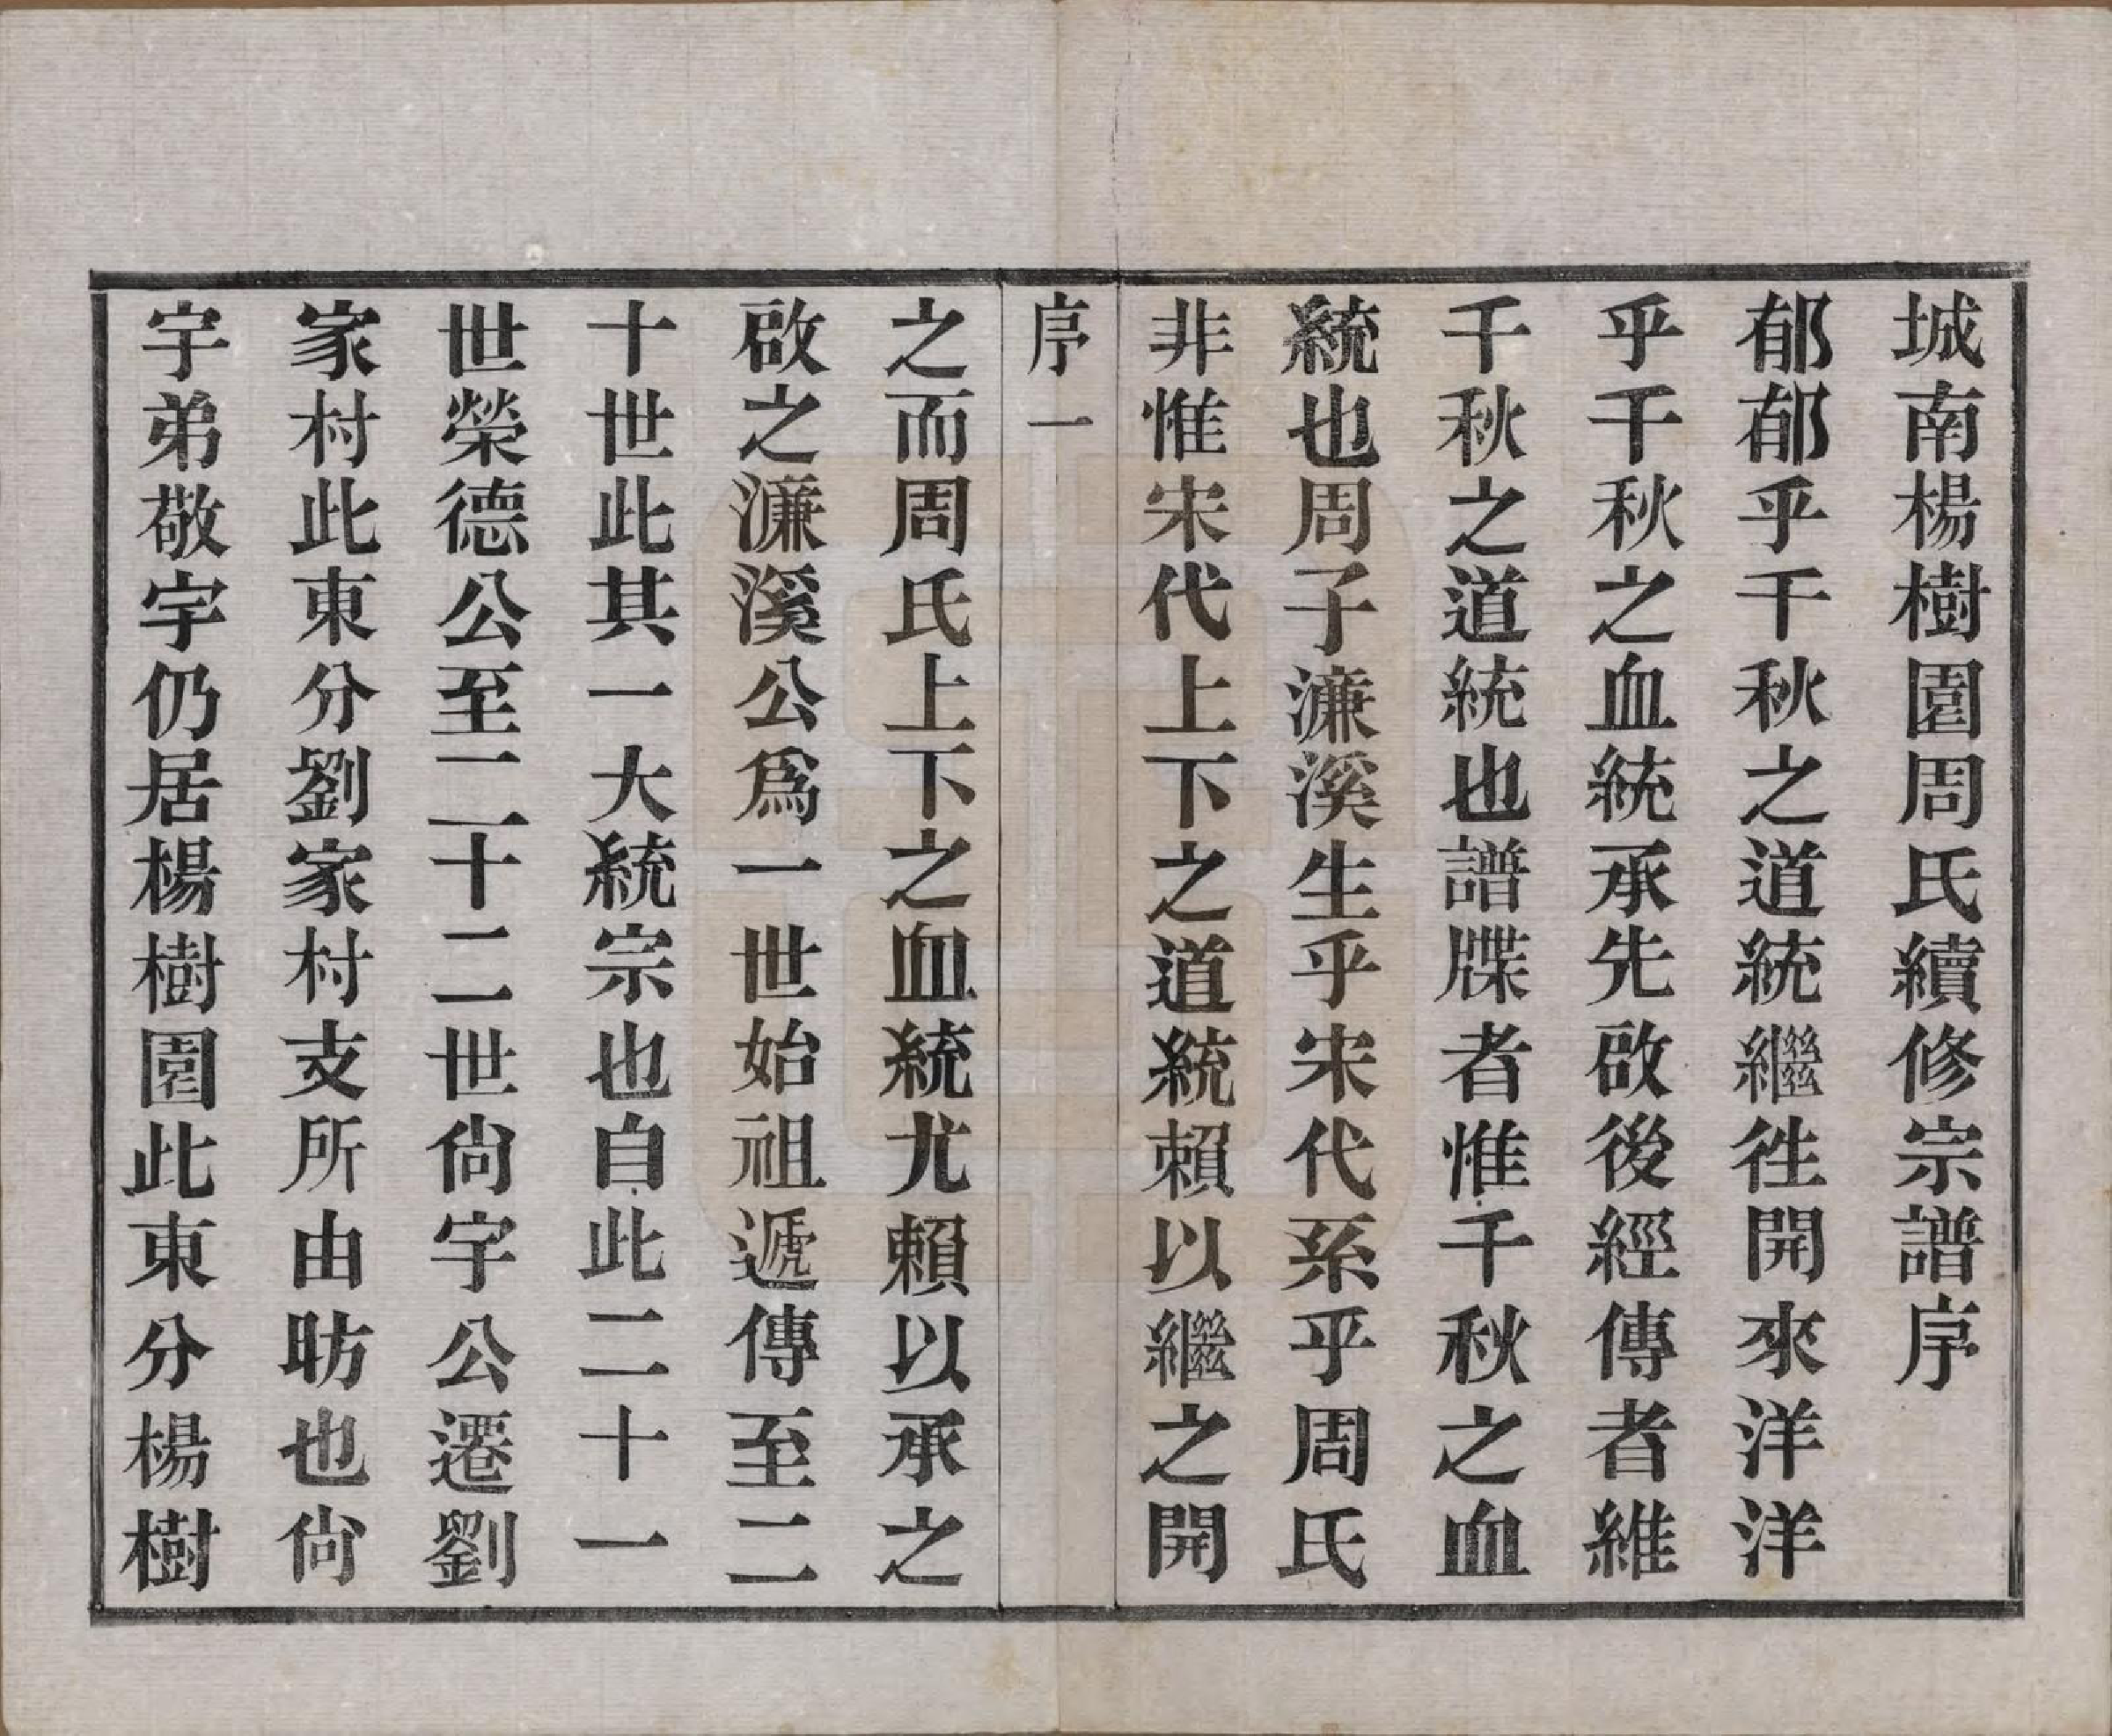 城南楊樹園周氏續修宗譜序
郁郁乎千秋之道統繼徃開來洋洋
乎千秋之血統承先啟後經傳者維
千秋之道統也譜牒者惟千秋之血
統也周子濂溪生乎宋代系乎周氏
非惟宋代上下之道統賴以繼之開
序一
之而周氏上下之血統尤賴以承之
啟之濂溪公爲一世始祖遞傳至二
十世此其一大統宗也自此二十一
世榮德公至二十二世尙宇公遷劉
家村此東分劉家村支所由昉也尙
宇弟敬宇仍居楊樹園此東分楊樹